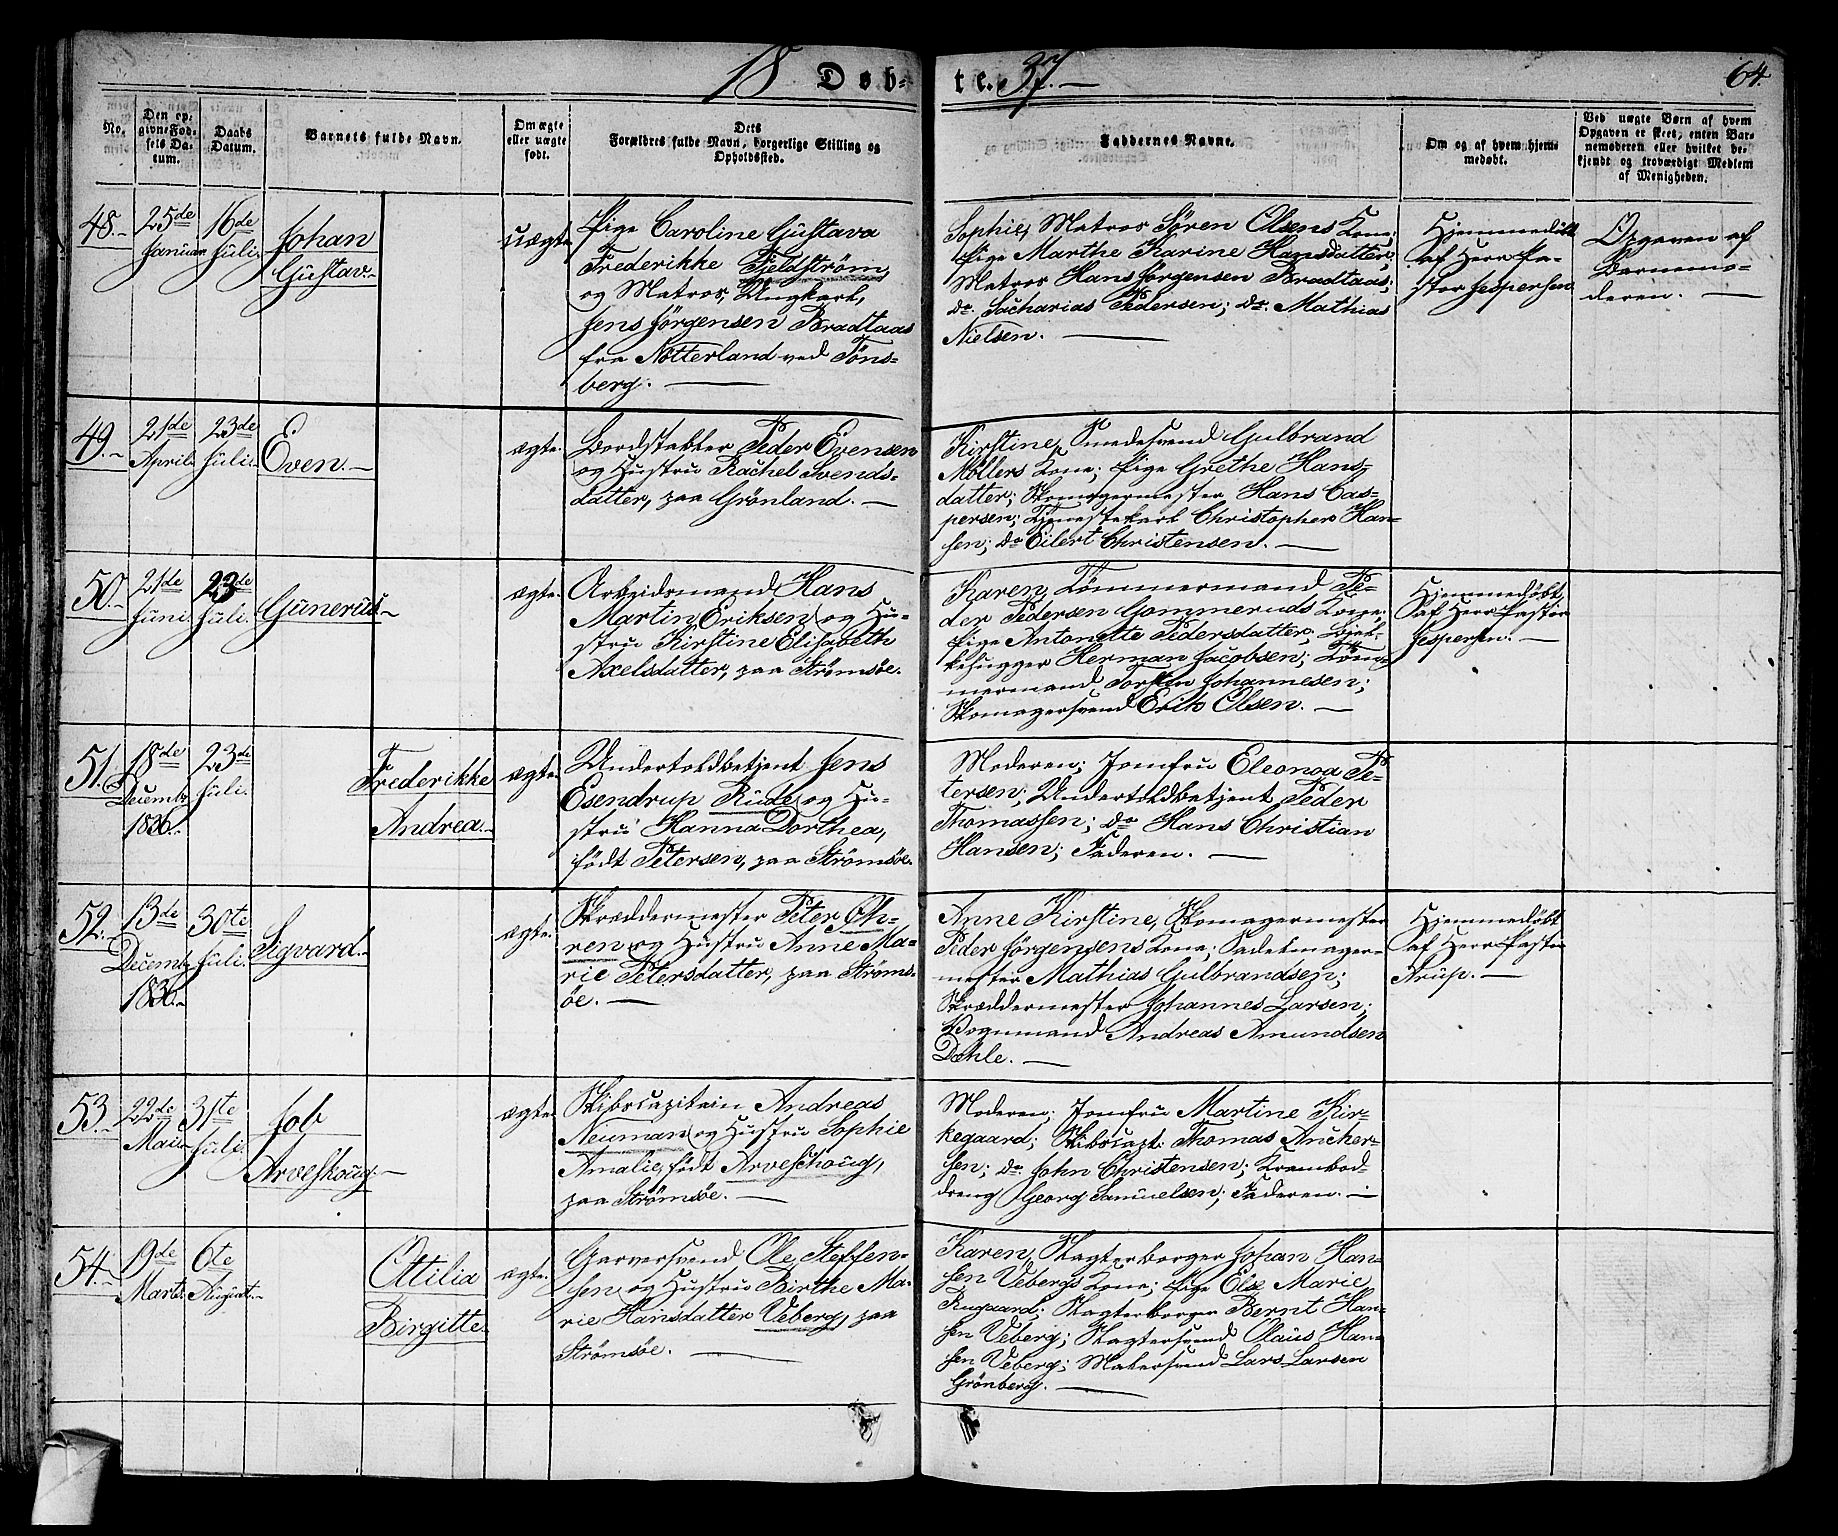 18 Døb-
te. 37.-
64.
No.
Den op-
givne Fød-
sels Da-
tum.
Daabs
Datum.
Barnets fulde Navn.
Om ægte
eller uægte
født.
Dets
Forældres fulde Navn, borgerlige Stilling og
Opholdssted.
Faddernes Navne.
Om og af hvem hjem-
medøbt.
Ved uægte Børn af hvem
Opgaven er skeet, enten Bar-
nemoderen eller hvilket be-
kjendt og troværdigt Medlem
af Menigheden.
48.-
25de
Januar
16de
Juli
Johan
Gustav.-
uægte
Pige Caroline Gustava
Frederikke Fjeldstrøm,
og Matros, Ungkarl,
Jens Jørgensen Bradtaas
fra Nøtterland ved Tøns-
berg. —
Sophie, Matros Søren Olsens Kone;
Pige Marthe Karine Hansdatter;
Matros Hans Jørgensen Bradtaas;
do. Zacharias Pedersen; do. Mathias
Nielsen. —
Hjemmedøbt
af Herr Pa-
stor Jespersen
Opgaven af
Barnemo-
deren. —
49.-
21de
April
23de
Juli.
Even.-
ægte.
Bordstabler Peder Evensen
og Hustru Rachel Svends-
datter, paa Grønland. —
Kirstine, Smedesvend Gulbrand
Møllers Kone; Pige Grethe Hans-
datter; Skomagermester Hans Cas-
persen; Tjenestekarl Christopher Han-
sen; do Eilert Christensen. —
50.-
21de
Juni
23de
Juli.
Gunerius-
ægte.
Arbeidsmand Hans
Martin Eriksen og Hu-
stru Kirstine Elisabeth
Axelsdatter, paa Strømsøe.
Karen, Tømmermand Pe-
der Pedersen Gommeruds Kone;
Pige Antonette Pedersdatter; Bjel-
kehugger Herman Jacobsen; Tøm-
mermand Torsten Johannesen;
Skomagersvend Erik Olsen. —
Hjemmedøbt
af Herr Pastor
Jespersen. —
51.
18de
Decembr
1836.-
23de
Juli.
Frederikke
Andrea.-
ægte.
Undertoldbetjent Jens
Esendrup Rude og Hu-
stru Hanna Dorthea,
født Petersen, paa Strømsøe.
Moderen; Jomfru Eleonoa Pe-
tersen; Undertoldbetjent Peder
Thomassen; do Hans Christian
Hansen; Faderen. —
52.-
13de
Decembr
1836.-
30te
Juli.
Sigvard.-
ægte.
Skræddermester Peter Oh-
ren og Hustru Anne Ma-
rie Petersdatter, paa Strøms-
øe. —
Anne Kirstine, Skomagermester
Peder Jørgensens Kone; Sadelmager-
mester Mathias Gulbrandsen;
Skræddermester Johannes Larsen;
Vognmand Andreas Amundsen
Dæhle. —
Hjemmedøbt
af Herr Pastor
Arup. —
53.-
22de
Mai-
31te
Juli.
Job
Arveskoug.-
ægte.
Skibscapitain Andreas
Neuman og Hustru Sophie
Amalie, født Arveschoug,
paa Strømsøe. —
Moderen; Jomfru Martine Kir-
kegaard; Skibscapt: Thomas Ancher-
sen; do. John Christensen; Krambod-
dreng Georg Samuelsen; Faderen. -
54.-
19de
Marts
6te
August.-
Ottilia
Birgitte.-
ægte.
Garversvend Ole Steffen-
sen og Hustru Birthe Ma-
rie Hansdatter Veberg, paa
Strømsøe. —
Karen, Slagterborger Johan Han-
sen Vebergs Kone; Pige Else Marie
Rugaard; Slagterborger Bernt Han-
sen Veberg; Slagtersvend Olaus Han-
sen Veberg; Malersvend Lars Larsen
Grønberg. —